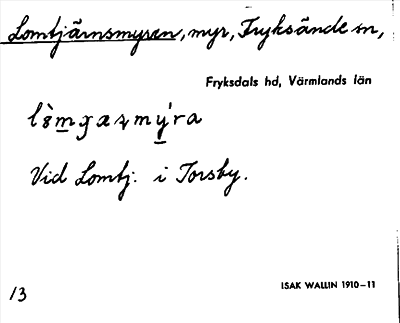 Lomtjärnsmyren, myr, Fryksände sn,
Fryksdals hd, Värmlands län
Vid Lomtj. i Torsby.
ISAK WALLIN 1910–11
13